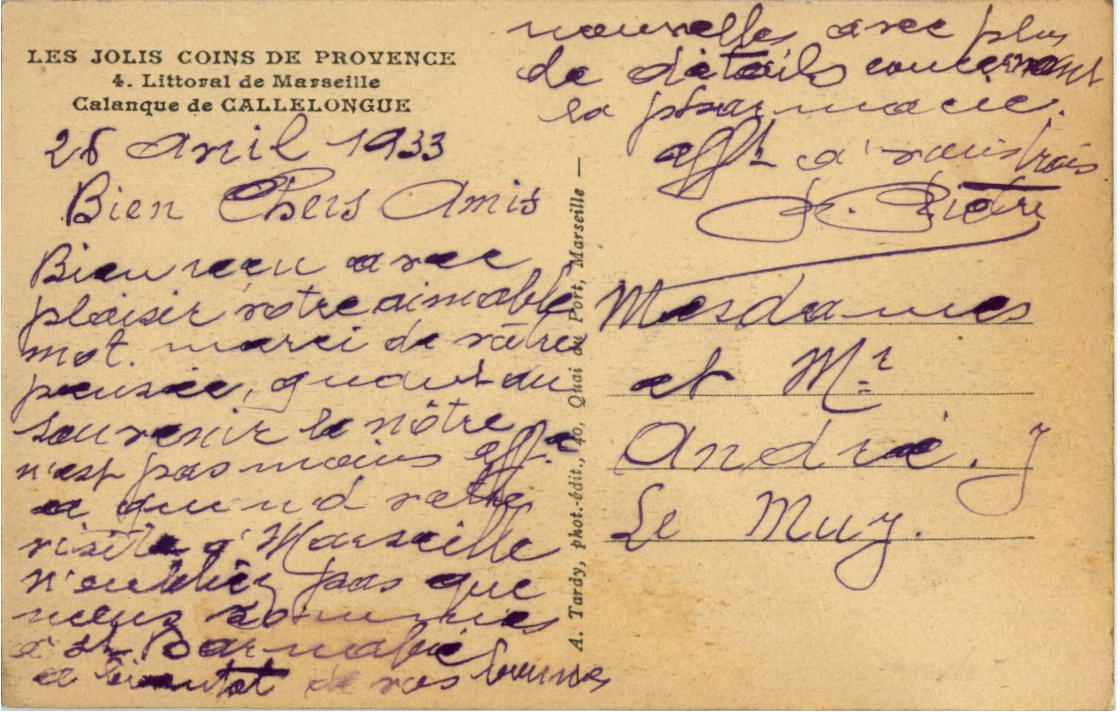 LES JOLIS COINS DE PROVENCE
4. Littoral de Marseille
Calanque de CALLELONGUE
26 Avril 1933
Bien Chers Amis
Bien reçu avec
plaisir votre aimable
mot. merci de vôtre
pensée, quant au
souvenir le nôtre
n'est pas moins aff.e
a quand votre
visite a' Marseille
n'oubliez pas que
nous sommes
à St Barnabé
a bientot de vos bonnes
nouvelles avec plus
de détails concernant
la pharmacie.
aff.t a' vous trois
A. Tardy, phot.-édit., 40, Quai du Port, Marseille —
Mesdames
et Mr
André. J
Le Muy.